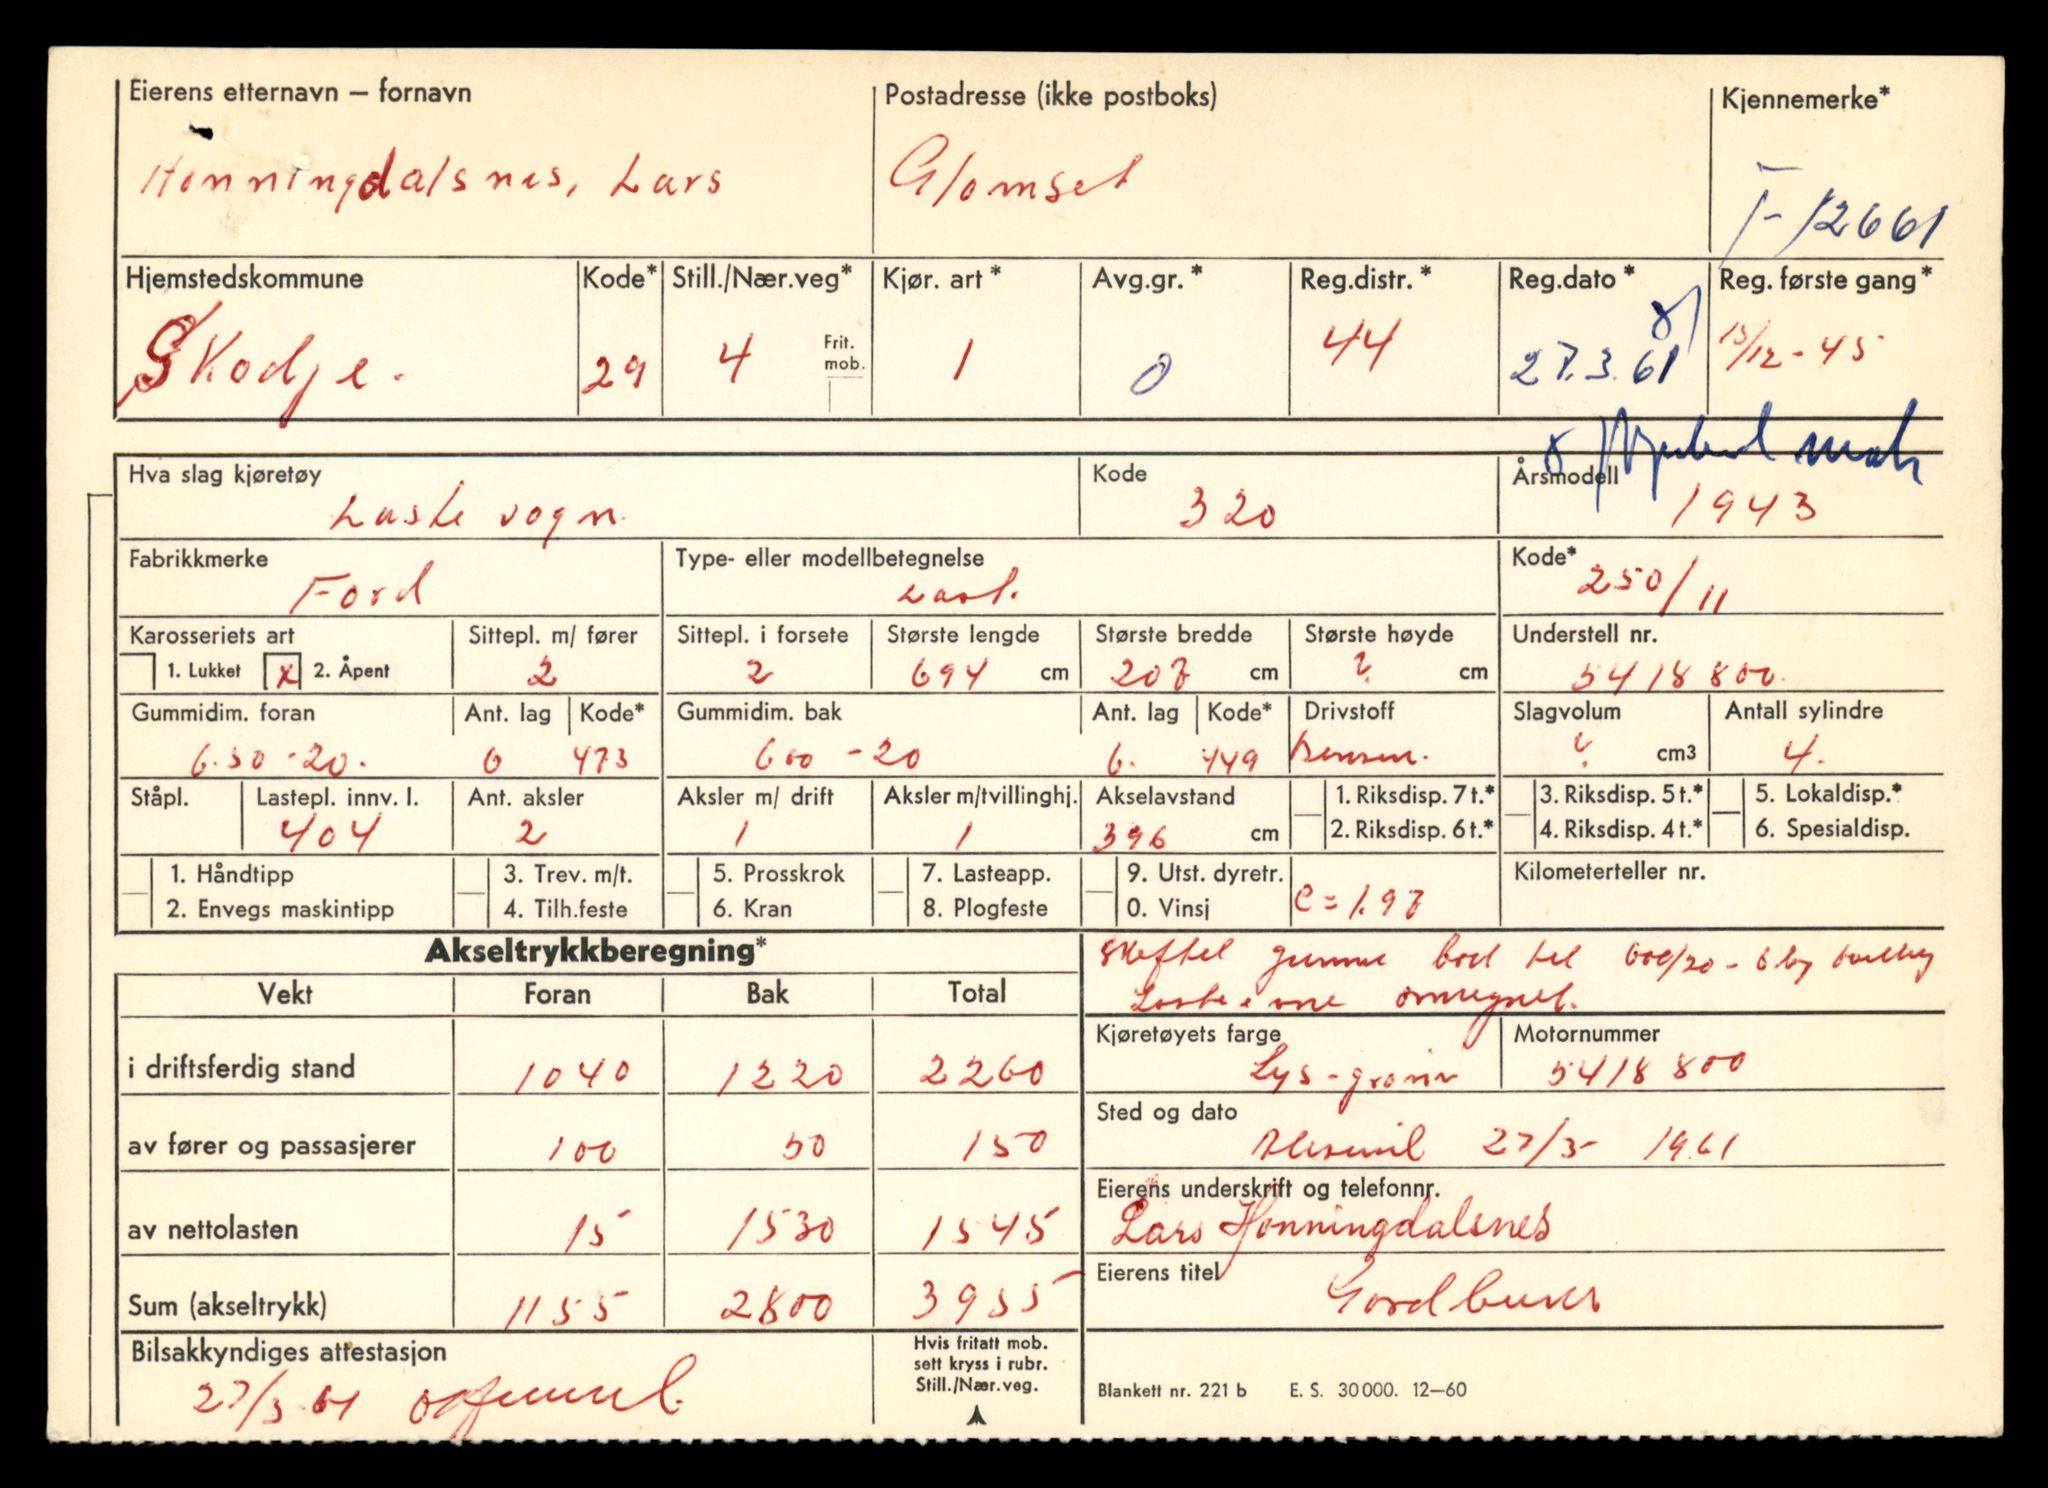 Eierens etternavn – fornavn Postadresse (ikke postboks) Kjennemerke*
Honningdalsnes, Lars Glomset T-12661
Hjemstedskommune Kode* Still./Nær.veg* Kjør. art* Avg.gr.* Reg.distr.* Reg.dato* Reg. første gang*
Skodje. 29 4 Frit. mob. 1 0 44 27.3.61 15/12-45
Hva slag kjøretøy Kode Årsmodell
Laste vogn. 320 1943
Fabrikkmerke Type- eller modellbetegnelse Kode*
Ford Last. 250/11
Karosseriets art Sittepl. m/ fører Sittepl. i forsete Største lengde Største bredde Største høyde Understell nr.
1. Lukket x 2. Åpent 2 2 694 cm 207 cm ? cm 5418800.
Gummidim. foran Ant. lag Kode* Gummidim. bak Ant. lag Kode* Drivstoff Slagvolum Antall sylindre
6.50-20. 6 473 600-20 6. 449 Bensin. ? cm3 4.
Ståpl. Lastepl. innv. l. Ant. aksler Aksler m/ drift Aksler m/tvillinghj. Akselavstand 1. Riksdisp. 7 t.* 3. Riksdisp. 5 t.* 5. Lokaldisp.*
404 2 1 1 396 cm 2. Riksdisp. 6 t.* 4. Riksdisp. 4 t.* 6. Spesialdisp.
1. Håndtipp 3. Trev. m/t. 5. Prosskrok 7. Lasteapp. 9. Utst. dyretr. Kilometerteller nr.
2. Envegs maskintipp 4. Tilh.feste 6. Kran 8. Plogfeste 0. Vinsj C=1.97
Akseltrykkberegning*
Skiftet gummi bak til 600/20-6
Lasteevne omregnet.
Vekt Foran Bak Total
Kjøretøyets farge Motornummer
Lys-grønn 5418800
i driftsferdig stand 1040 1220 2260
Sted og dato
Ålesund 27/3- 1961
av fører og passasjerer 100 50 150
Eierens underskrift og telefonnr.
Lars Honningdalsnes
av nettolasten 15 1530 1545
Eierens titel
Gardbruker
Sum (akseltrykk) 1155 2800 3955
Bilsakkyndiges attestasjon
27/3.61
Hvis fritatt mob.
sett kryss i rubr.
Still./Nær.veg.
Blankett nr. 221 b E. S. 30 000. 12–60